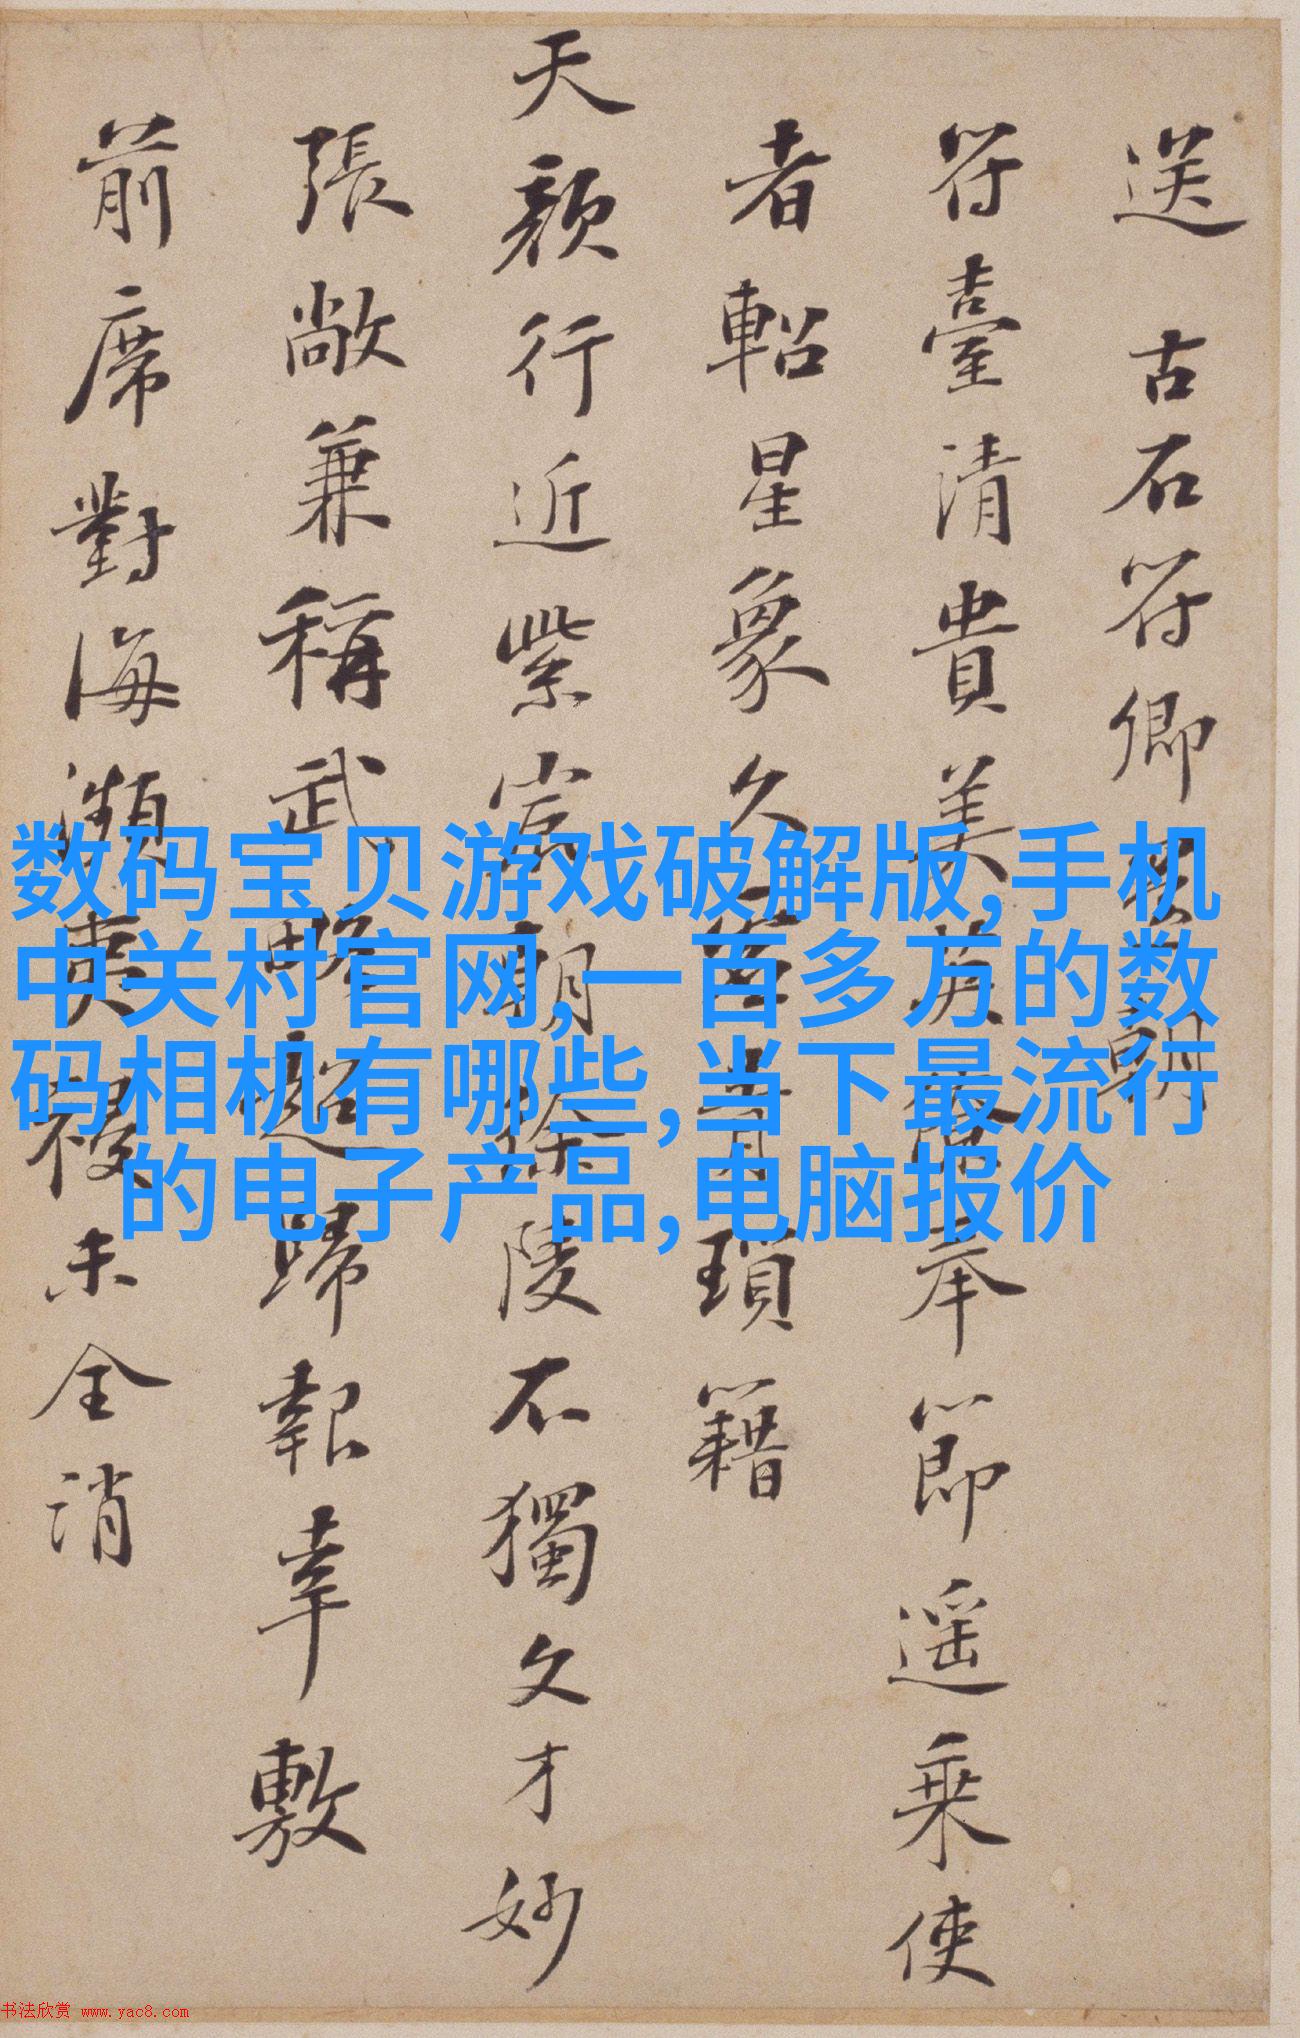 送 古石符卿 朝
符臺清貴美英 奉節遥乘使
者軺星象久 青瑣籍
天顔行近紫宸朝徐陵不獨文才妙
張敞兼稱武略超歸報幸敷
前席對海瀕 祲未全消
数码宝贝游戏破解版,手机
中关村官网,一百多万的数
码相机有哪些,当下最流行
的电子产品,电脑报价
书法欣赏 www.yac8.com